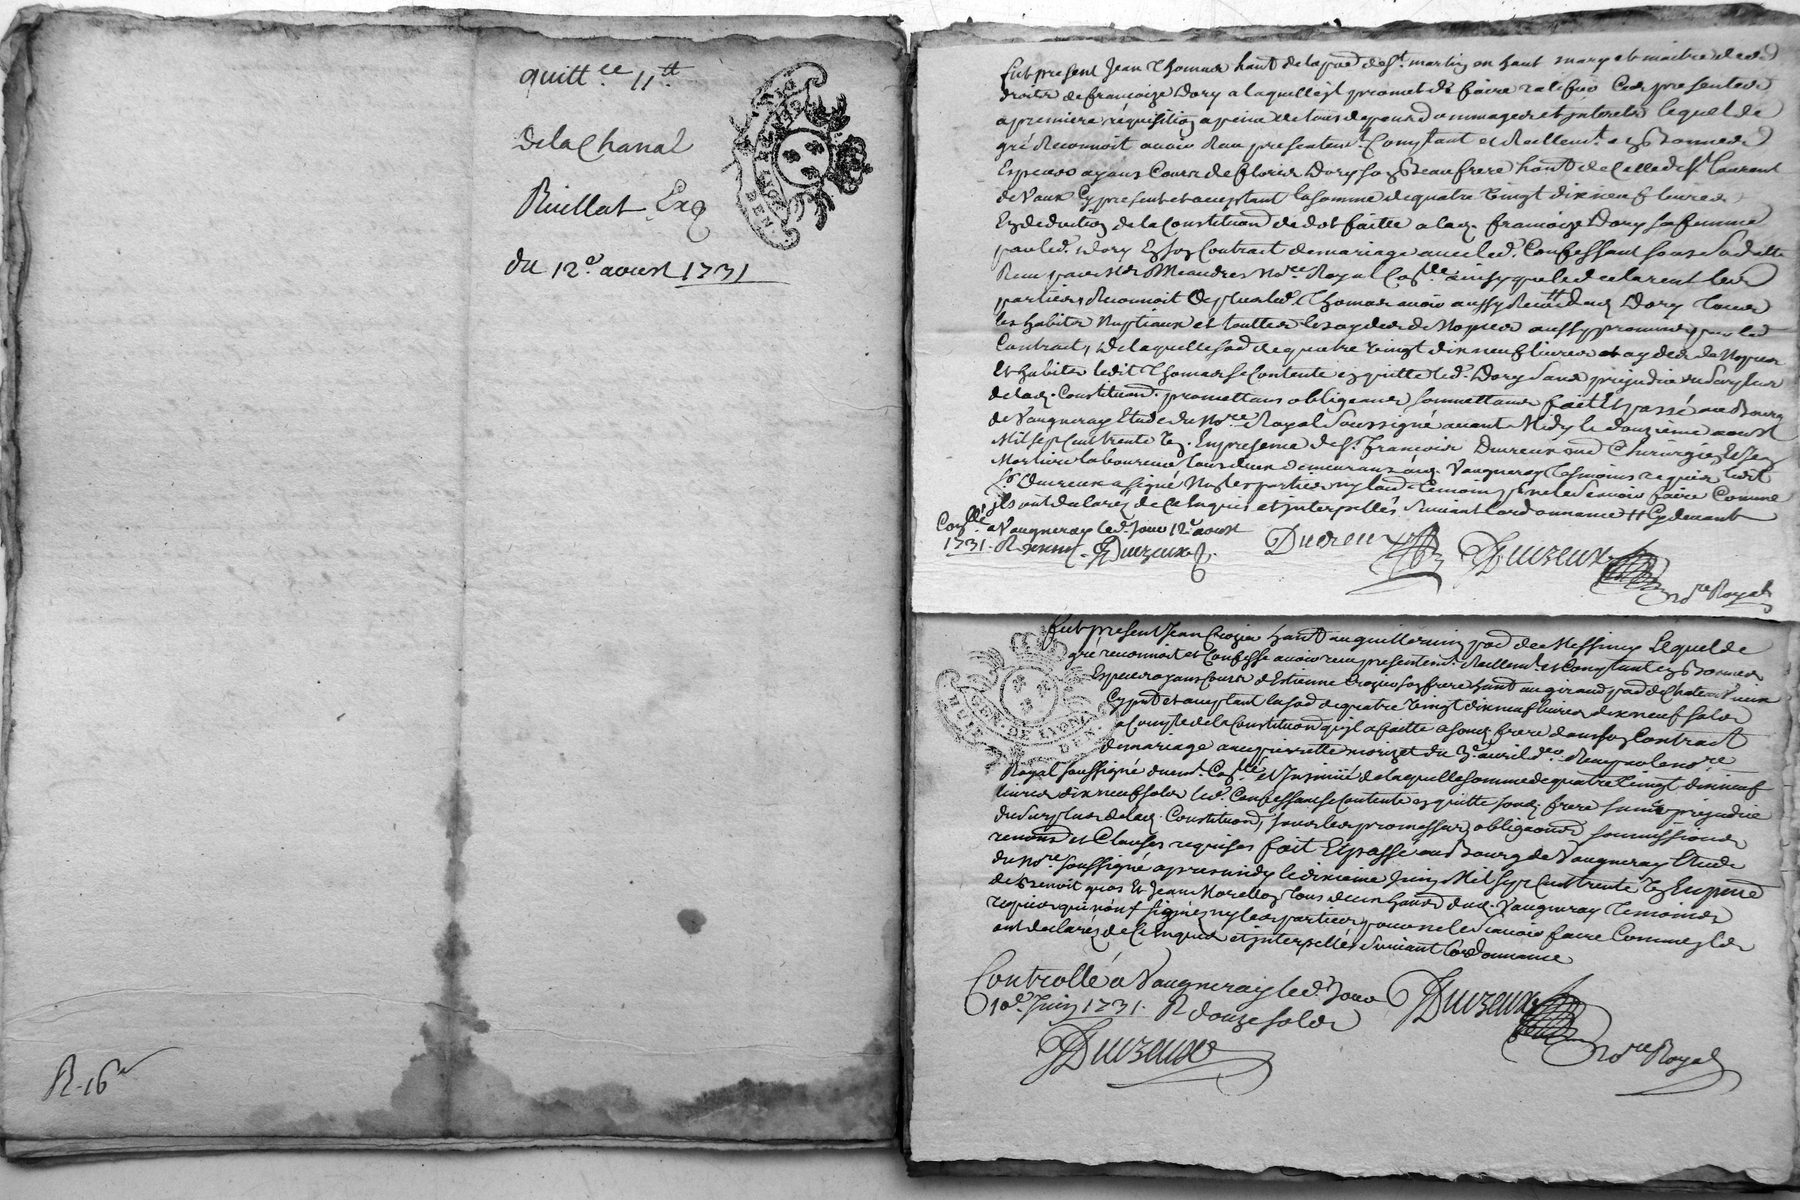 quittce 11tt
De la Chanal
Ruillat
du 12e aoust 1731
R. 16s
fut present Jean Thomas hant de la parse de st martin en haut mary et maitre des
droits de francoize Dory a laquelle il promet de faire ratifier ces presentes
a premiere requisition a peine de tous depens dommages et interets lequel de
gré reconnoit avoir reçu presentemt comptant et reellemt en bonnes
Especes ayans cours de Dory son Beaufrere hant de celle de st Laurent
de Vaux cy present et acceptant la somme de quatre vingt dix neuf livres
En deduction de la constitution de dot faitte a lad. francoize Dory sa femme
par led. Dory En son contract de mariage avec led. Confessant sous sa datte
Reçu par Me Meandres Nore Royal ainsy que le declarent les
parties, Reconnoit de plus led. Thomas avoir aussy reçu dud. Dory tous
les habits Nuptiaux et touttes les aydes de Nopces aussy promises par led.
Contract, De laquelle sod. de quatre vingt dix neuf livres et aydes de Nopces
Et habits ledit Thomas se contente en quitte led. Dory sans prejudice du surplus
de lad. Constituon. promettans obligeans soumettans fait Et passé au Bourg
de Vaugneray Etude du Nore Royal soussigné avant Midy le douzieme aoust
Mil sept cent trente Un. En presence de sr. francois Ducreux md Chirurgien et
laboureur tous deux demeurans aud. Vaugneray temoins requis ledit
sr Ducreux a signé Non les parties ny l'autre temoin pour ne le scavoir faire comme
ils ont declaré de ce Enquis et interpellés suivant l'ordonnance
Conllé a Vaugneray led. Jour 12e aoust
1731. R Duizeux
Ducreux Duizeux
nore Royal
fut present Jean Crozier hant au guillermin parse de Messimy Lequel de
gré reconnoit et Confesse avoir reçu presentemt. Reellemt. et Comptant en Bonnes
Especes ayans cours d'Estienne Crozier son frere hant au giraud parse de Chateauvieux
Cy present et acceptant la sod de quatre vingt dix neuf livres dix neuf sols
a Compte de la Constitution qu'il a faitte a sond. frere dans son Contract
de mariage avec pierrette morizet du 3e. avril dr. Reçu par le nore
Royal soussigné duemt. Conllé Et Insinué de laquelle somme de quatre vingt dix neuf
livres dix neuf sols led. Confessant se contente en quitte sond. frere sans prejudice
du surplus de lad. Constituon, sous les promesses, obligations soumissions
renons et Clauses requises fait Et passé au Bourg de Vaugneray Etude
du Nore soussigné apres midy le dixieme Juin Mil sept cent trente Un En presence
de Benoit gras Et Jean Morellon tous deux hants dud. Vaugneray temoins
requis qui n'ont signés ny les parties pour ne le scavoir faire comme ils
ont declarés de ce Enquis et interpellés suivant l'ordonnance
Controllé a Vaugneray led. Jour
10e. Juin 1731. R douze sols
Duizeux
Duizeux
nore Royal
GEN. DE LYON